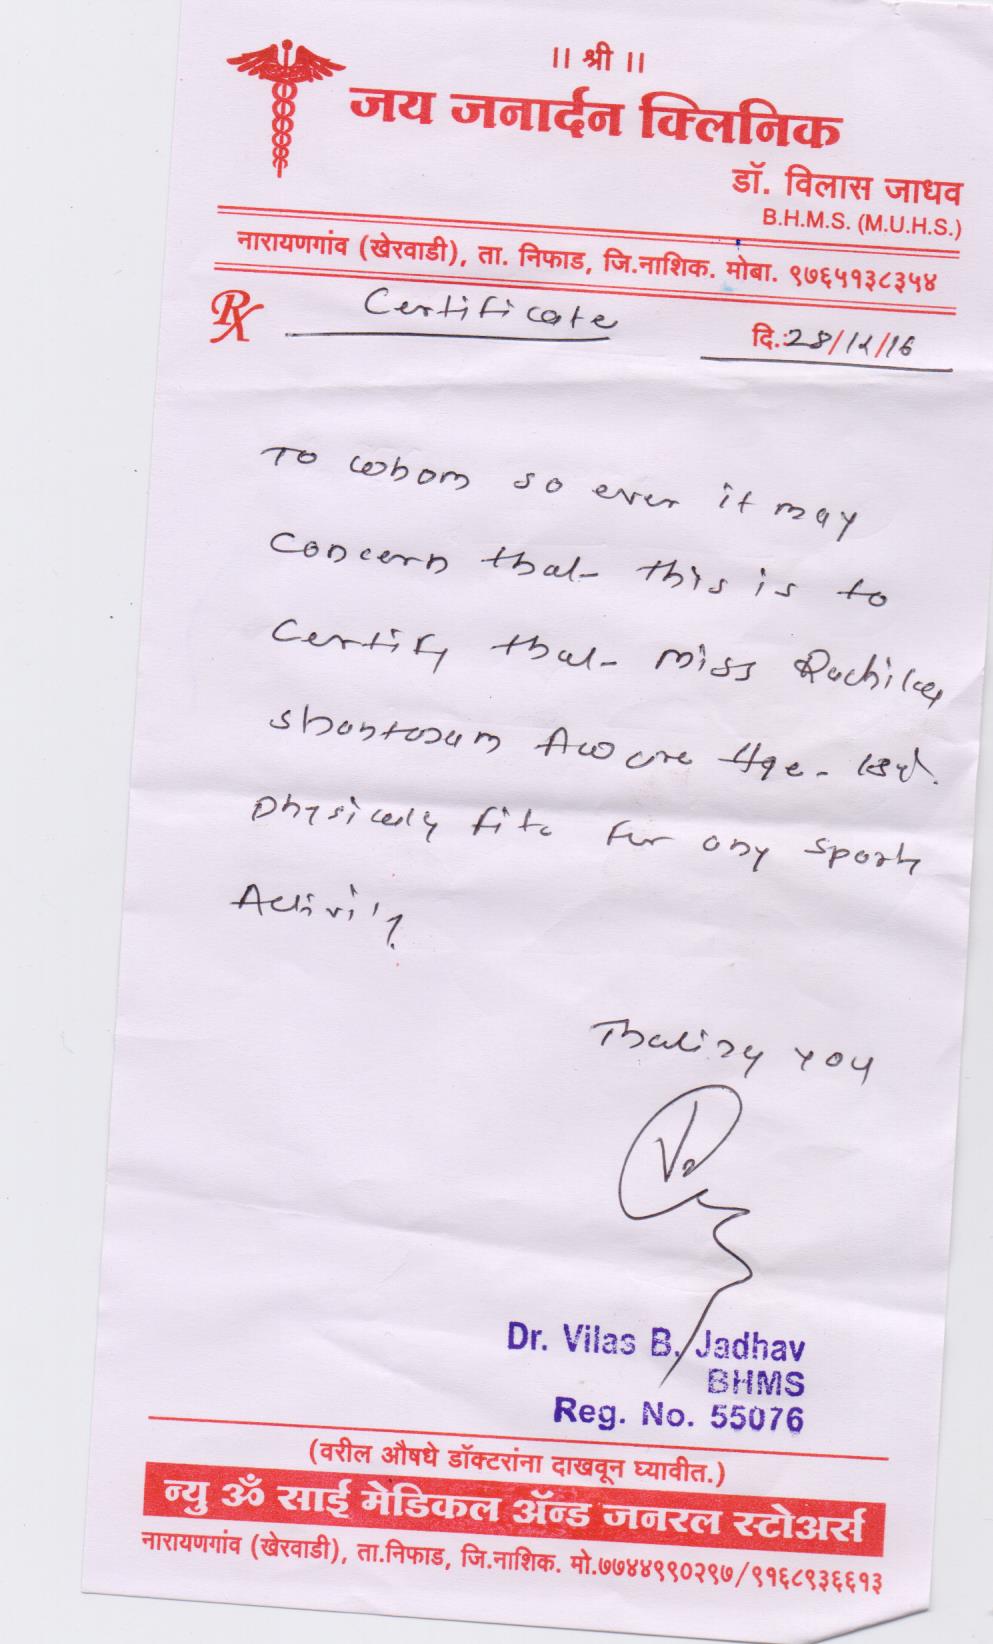 || श्री ||
जय जनार्दन क्लिनिक
डॉ. विलास जाधव
B.H.M.S. (M.U.H.S.)
नारायणगांव (खेरवाडी), ता. निफाड, जि.नाशिक. मोबा. ९७६५१३८३५४
Rx Certificate दि.:28/12/16
To whom so ever it may
Concern that this is to
Certify that Miss
Shantaram Aware Age -
physically fit for any sport
Activity
Thanking you
Dr. Vilas B. Jadhav
BHMS
Reg. No. 55076
(वरील औषधे डॉक्टरांना दाखवून घ्यावीत.)
न्यु ॐ साई मेडिकल ॲन्ड जनरल स्टोअर्स
नारायणगांव (खेरवाडी), ता.निफाड, जि.नाशिक. मो.७७४४९९०२९७/९१६८९३६६१३